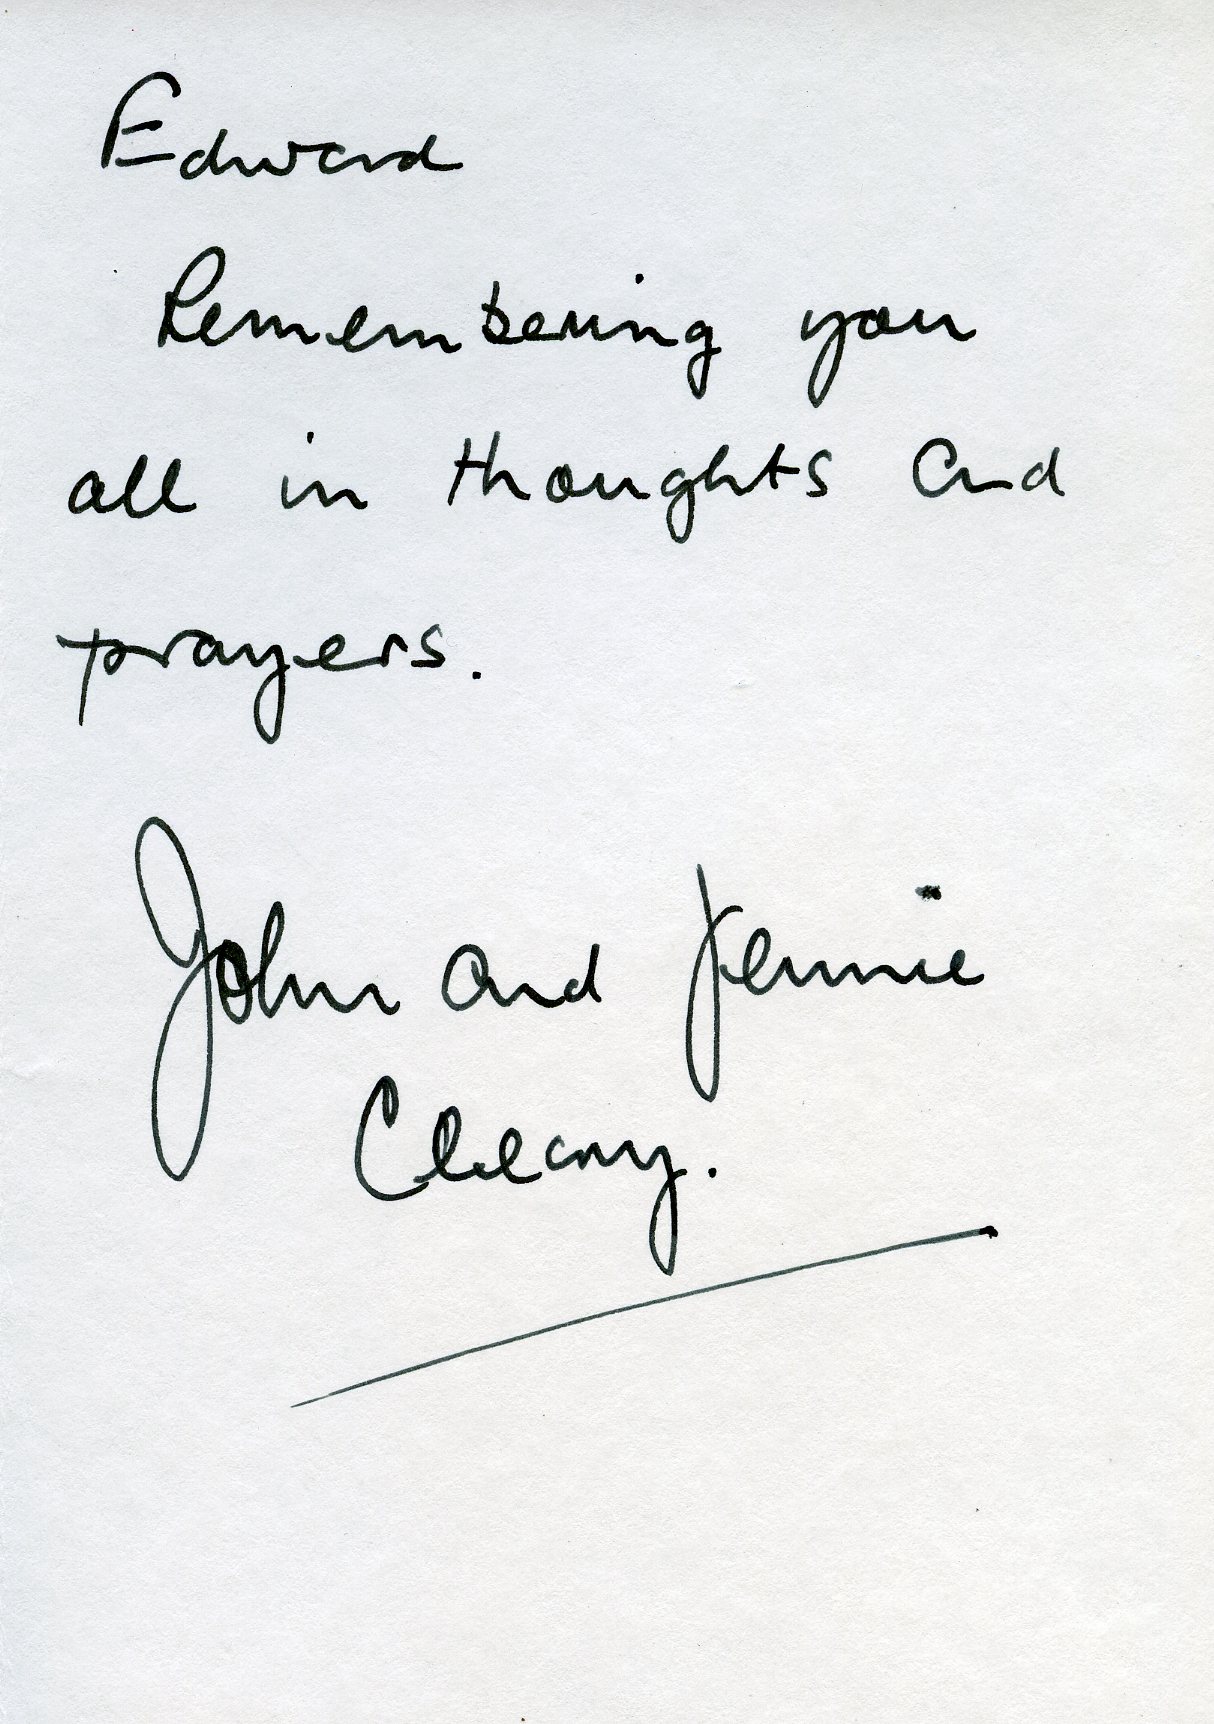 Edward
Remembering you
all in thoughts and
prayers.
John and Jennie
Cleary.